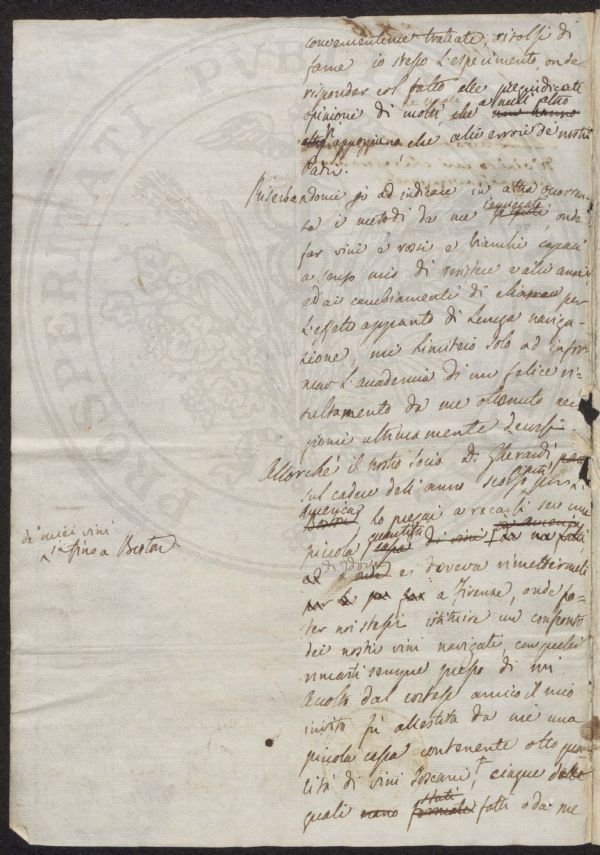 convenientemente trattate, risolsi di
farne io stesso l'esperimento, onde
risponder col fatto alle pregiudicate
opinioni di molti che a null'altro
appoggiano che alli errori de nostri
Padri.
Riserbandomi poi ad indicare in altra occorren-
za i metodi da me impiegati, onde
far vini e rossi e bianchi capaci
a senso mio di resistere e alli anni
ed ai cambiamenti di clima per
l'effetto appunto di lunga naviga-
zione, mi limiterò solo ad infor-
mare l'academia di un felice ri-
sultamento da me ottenuto nei
giorni ultimamente decorsi.
Allorché il nostro socio D. Gherardi
sul cadere dell'anno scorso partì per l'
America lo pregai a recarsi seco una
piccola quantità
de' miei vini
fino a Boston
di dove ei doveva rimettermeli
a Firenze, onde po-
ter noi stessi istituire un confronto
dei nostri vini navigati, con quelli
rimasti sempre presso di noi
Accolto dal cortese amico il mio
invito fu allestita da me una
piccola cassa contenente otto qua-
lità di vini Toscani, cinque delle
quali stati fatti da me